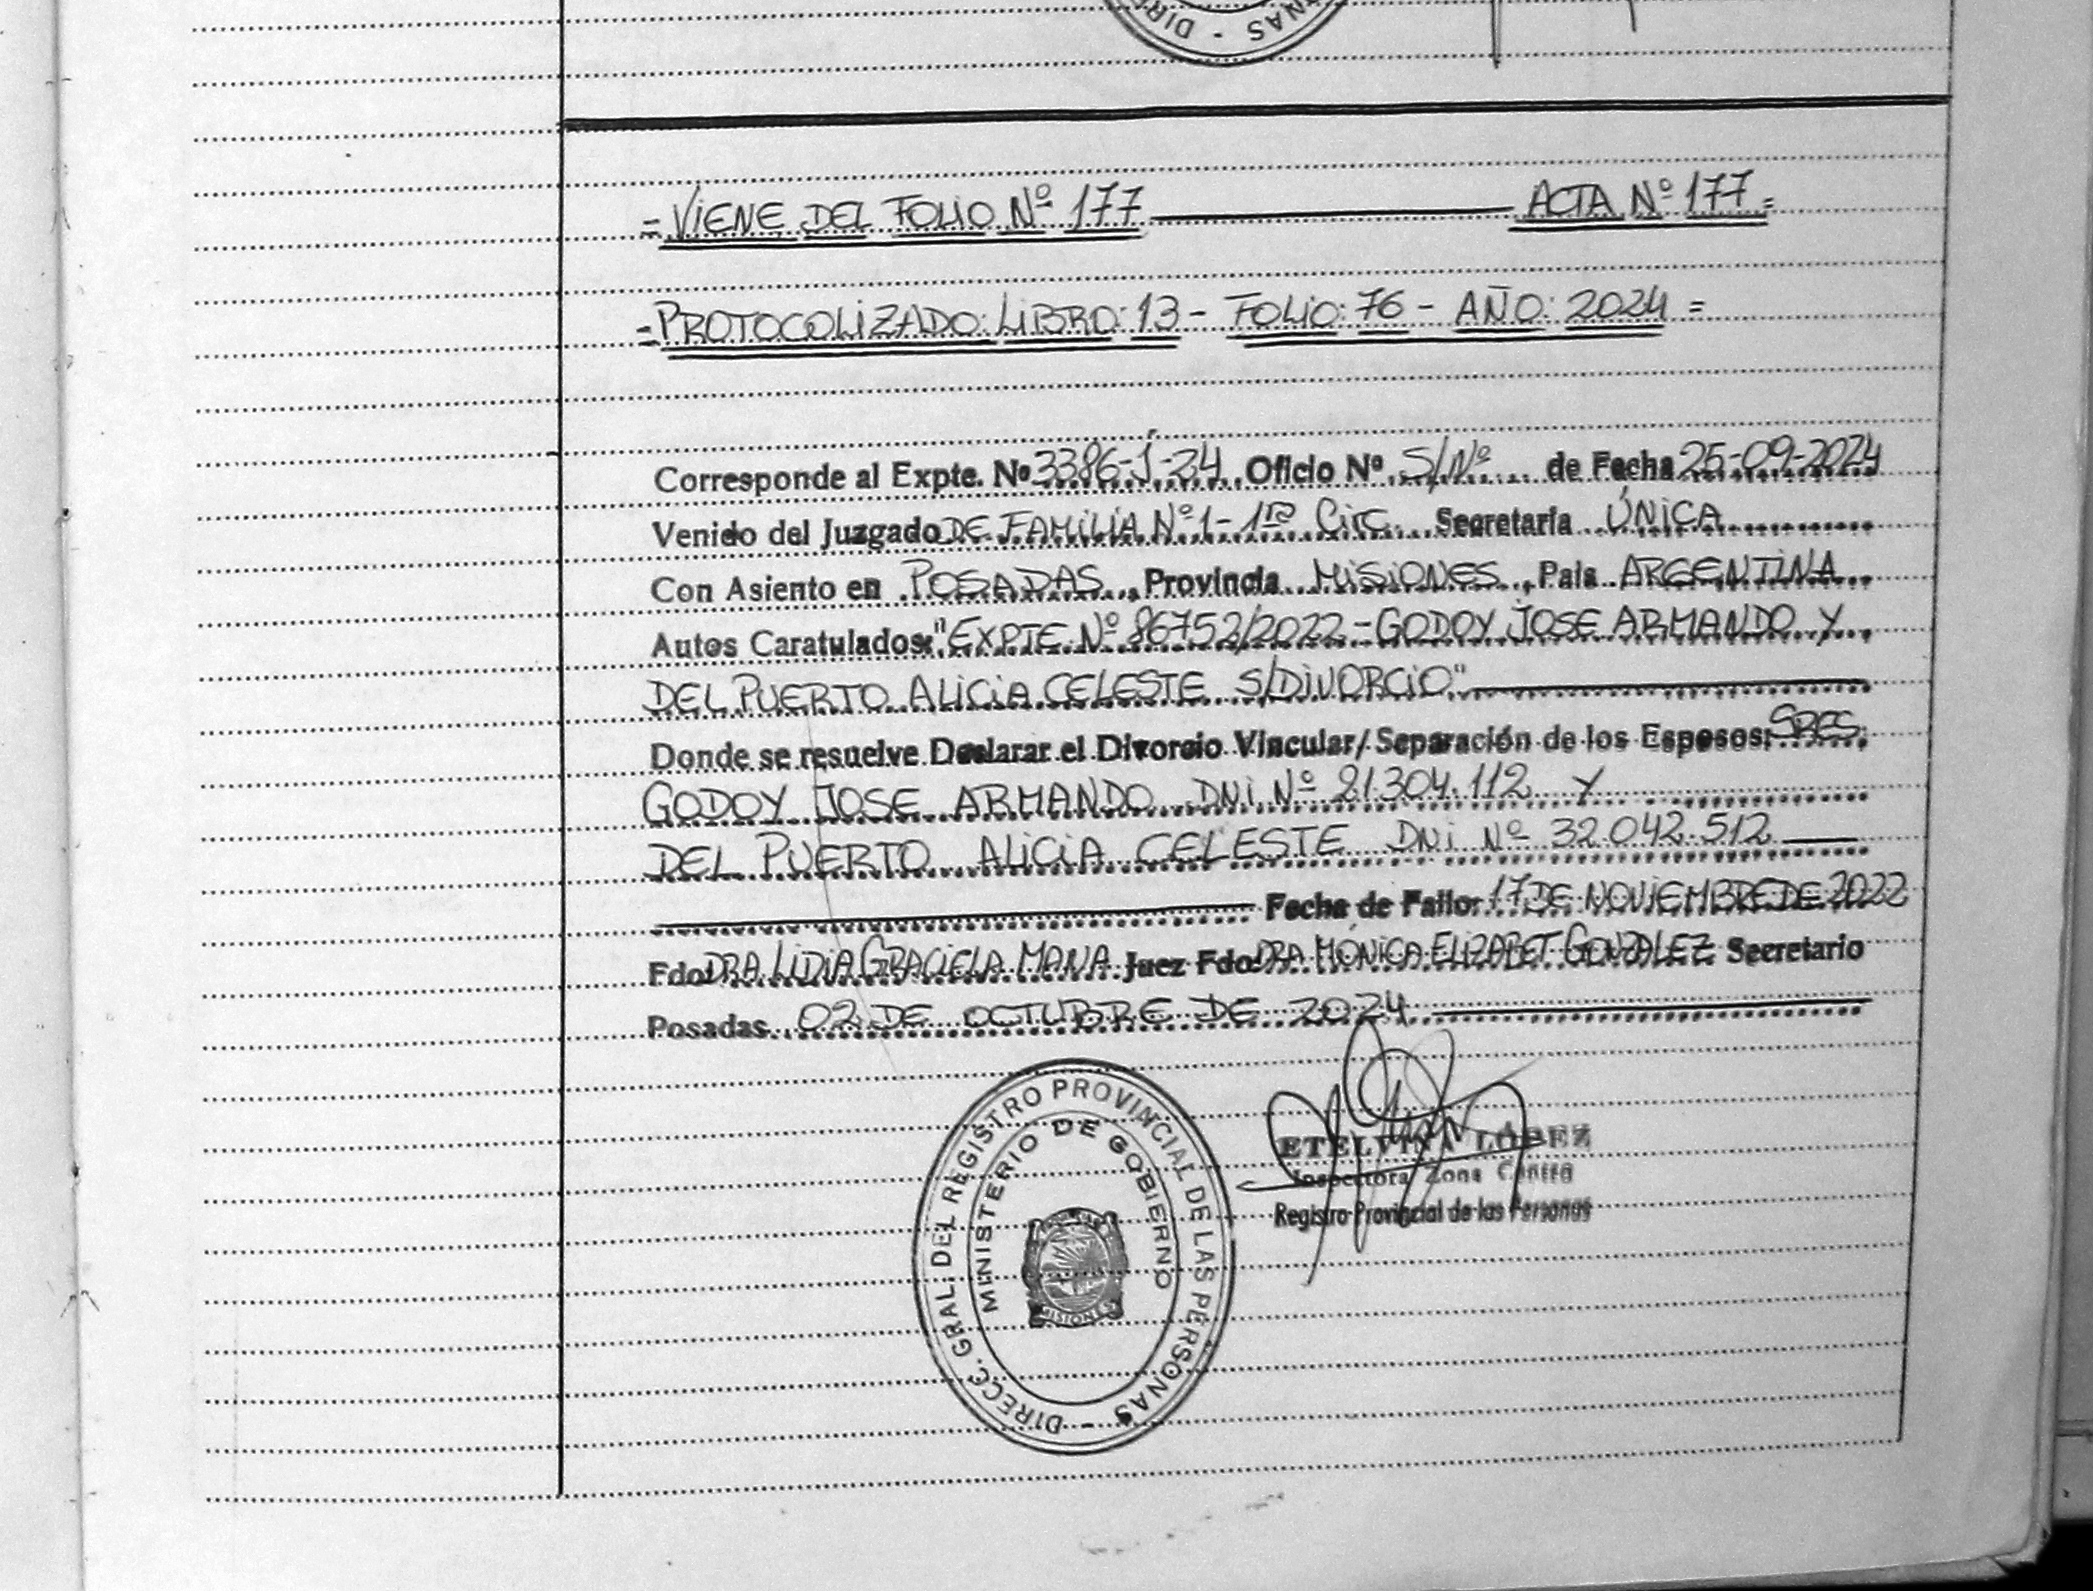 DIRE - NAS
= VIENE DEL FOLIO Nº 177 ACTA Nº 177 =
= PROTOCOLIZADO: LIBRO: 13 - FOLIO: 76 - AÑO: 2024 =
Corresponde al Expte. Nº 3386-J-24 Oficio Nº S/Nº de Fecha 25-09-2024
Venido del Juzgado DE FAMILIA Nº 1 - 1ra Circ. Secretaría ÚNICA
Con Asiento en POSADAS, Provincia MISIONES, País ARGENTINA
Autos Caratulados: "EXPTE Nº 86752/2022 - GODOY JOSE ARMANDO Y
DEL PUERTO ALICIA CELESTE S/DIVORCIO"
Donde se resuelve Declarar el Divorcio Vincular/Separación de los Esposos: SRES.
GODOY JOSE ARMANDO DNI Nº 21.304.112 Y
DEL PUERTO ALICIA CELESTE DNI Nº 32.042.512
Fecha de Fallo: 17 DE NOVIEMBRE DE 2022
Fdo: DRA LIDIA GRACIELA MANA Juez Fdo: DRA MÓNICA ELIZABET GONZALEZ Secretario
Posadas 02 DE OCTUBRE DE 2024
DIRECC. GRAL. DEL REGISTRO PROVINCIAL DE LAS PERSONAS -
MINISTERIO DE GOBIERNO
MISIONES
ETELVINA LOPEZ
Inspectora Zona Centro
Registro Provincial de las Personas